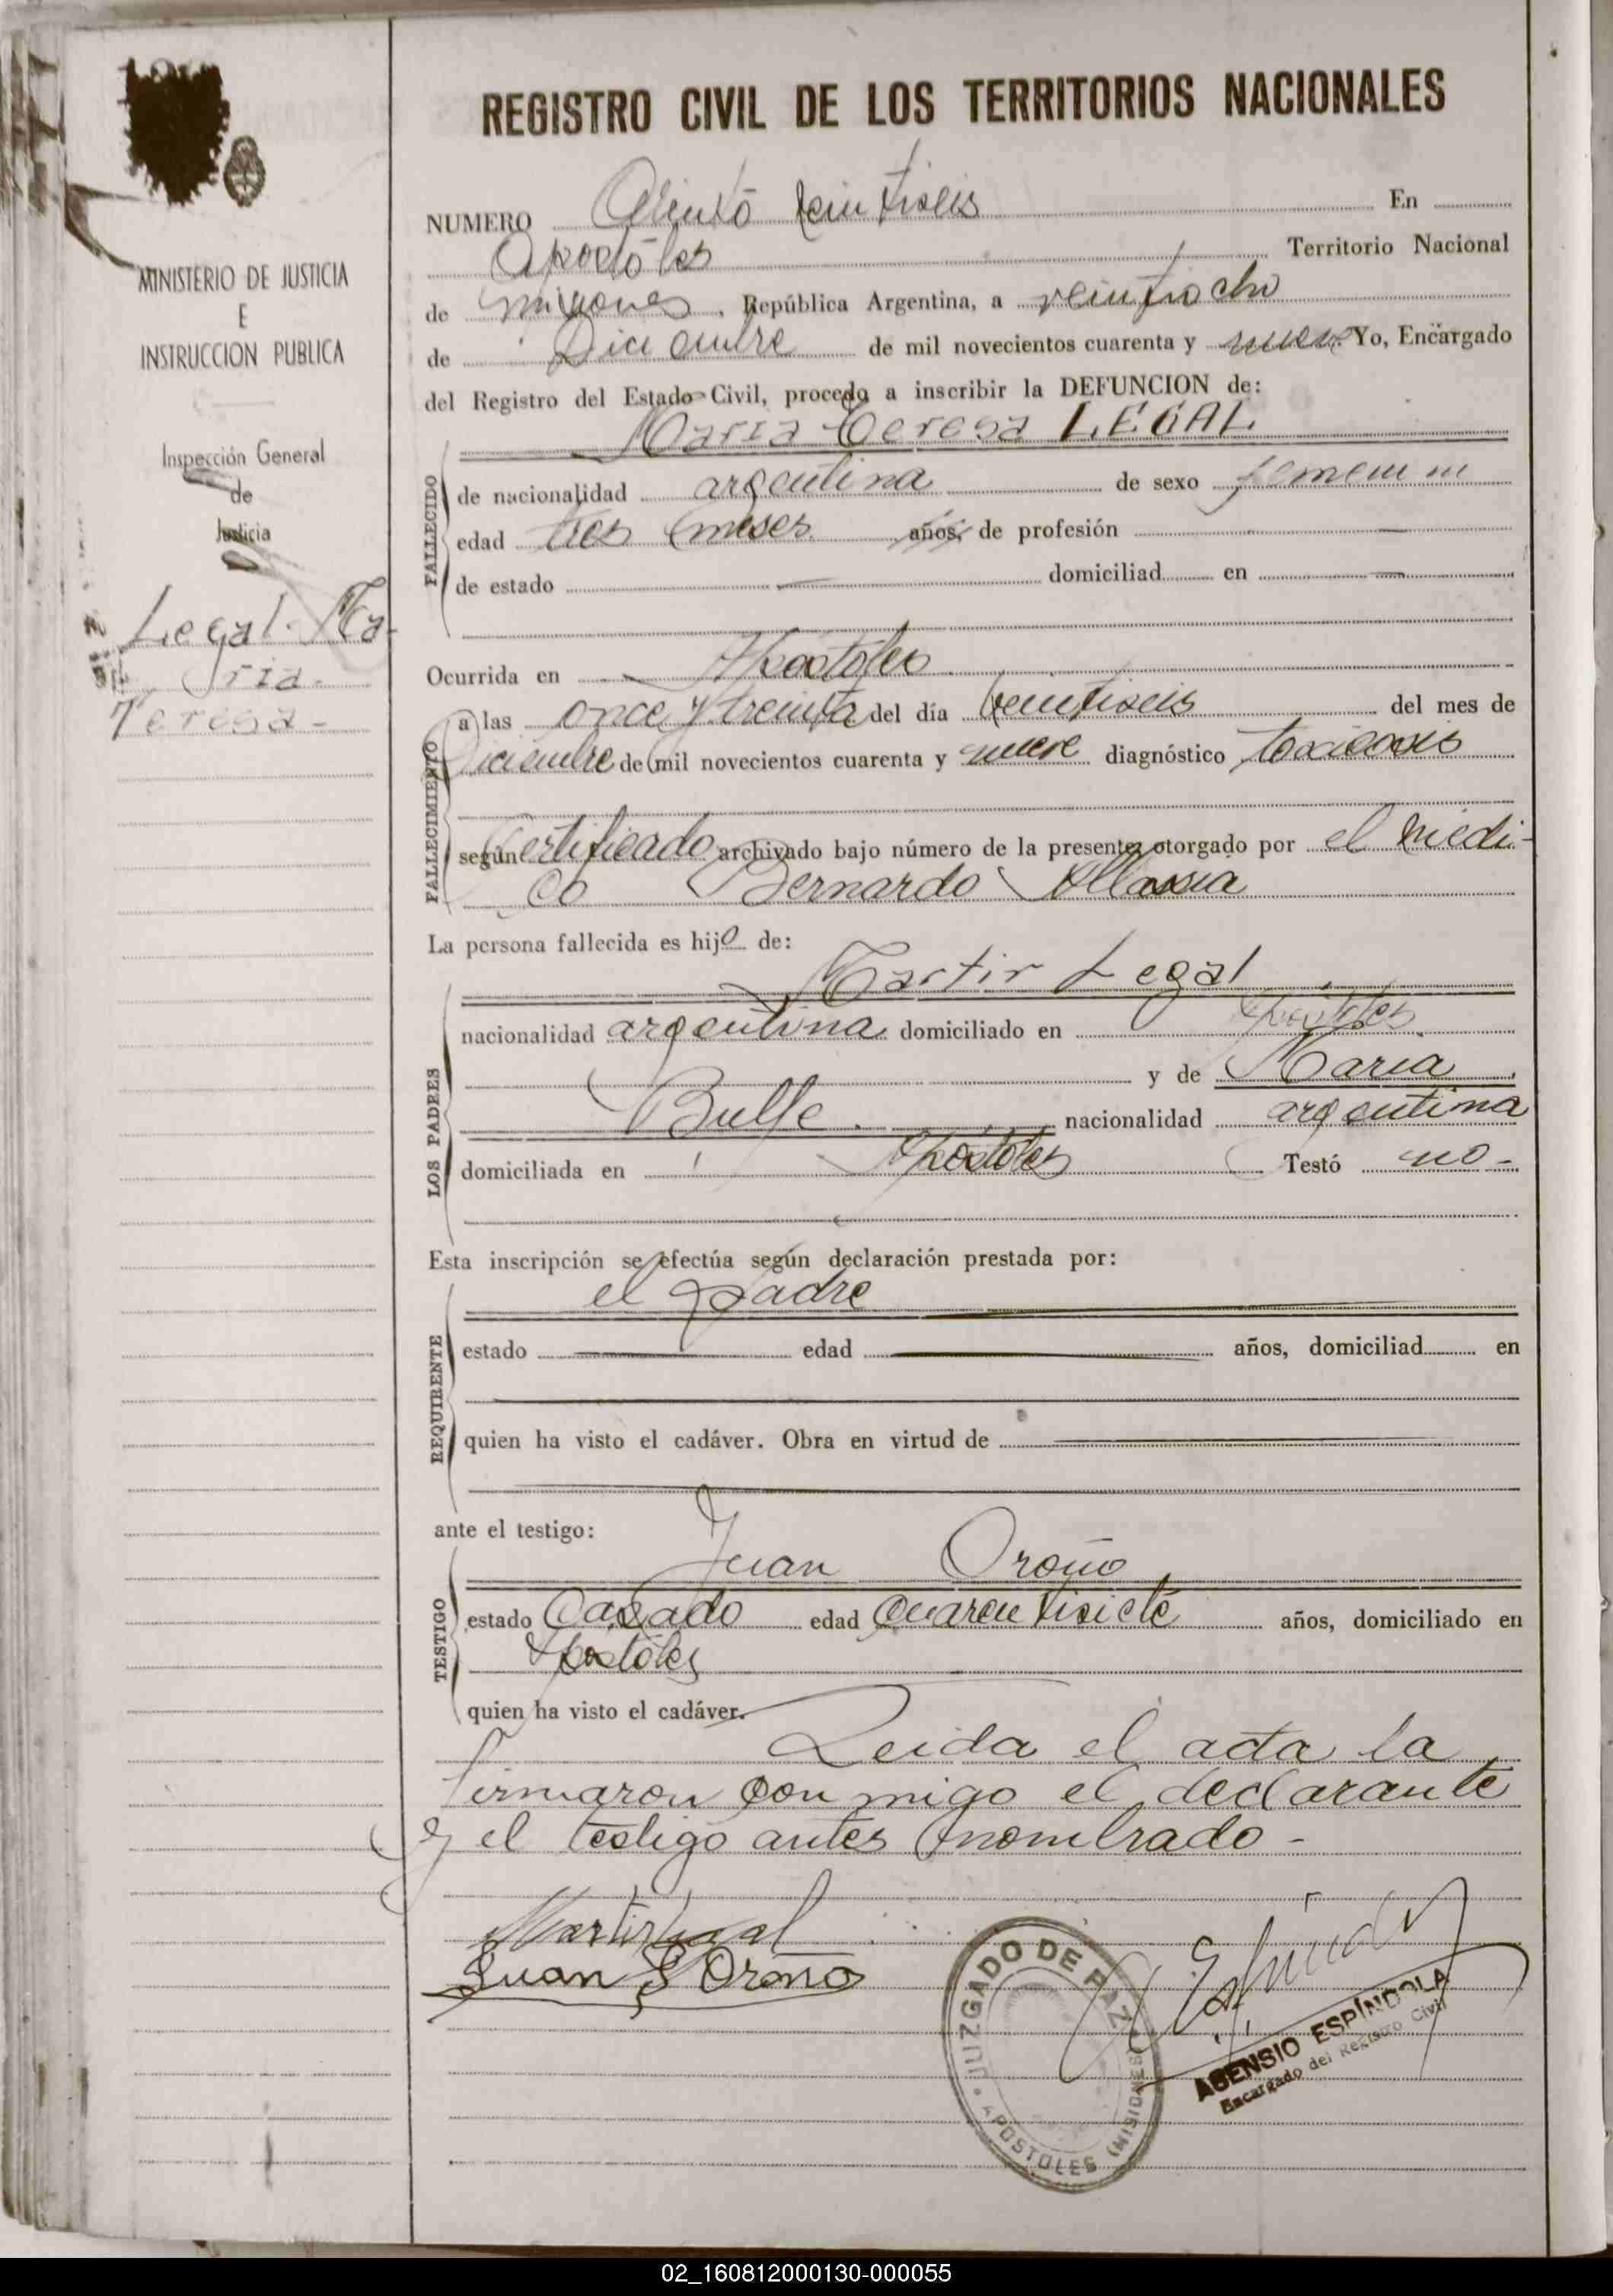 REGISTRO CIVIL DE LOS TERRITORIOS NACIONALES
MINISTERIO DE JUSTICIA
E
INSTRUCCION PUBLICA
Inspección General
de
Justicia
Legal Ma-
ria
Teresa -
NUMERO Ciento veintiseis En
Apostoles Territorio Nacional
de Misiones, República Argentina, a veintiocho
de Diciembre de mil novecientos cuarenta y nueve Yo, Encargado
del Registro del Estado Civil, procedo a inscribir la DEFUNCION de:
Maria Teresa LEGAL
FALLECIDO
de nacionalidad argentina de sexo femenino
edad tres meses años, de profesión —
de estado — domiciliad en —
Ocurrida en Apostoles
FALLECIMIENTO
a las once y treinta del día veintiseis del mes de
Diciembre de mil novecientos cuarenta y nueve diagnóstico toxicosis
según Certificado archivado bajo número de la presente, otorgado por el médi-
co Bernardo Allassia
La persona fallecida es hijo de:
LOS PADRES
Martir Legal
nacionalidad argentina domiciliado en Apostoles
y de Maria
Bulfe nacionalidad argentina
domiciliada en Apostoles Testó no -
Esta inscripción se efectúa según declaración prestada por:
REQUIRENTE
el padre
estado — edad — años, domiciliad en
quien ha visto el cadáver. Obra en virtud de —
ante el testigo:
TESTIGO
Juan Oroño
estado Casado edad cuarentisiete años, domiciliado en
Apostoles
quien ha visto el cadáver.
Leida el acta la
firmaron con migo el declarante
y el testigo antes nombrado -
Martir Legal
Juan S Oroño
JUZGADO DE PAZ
APOSTOLES (MISIONES)
ASENSIO ESPÍNDOLA
Encargado del Registro Civil
02_160812000130-000055